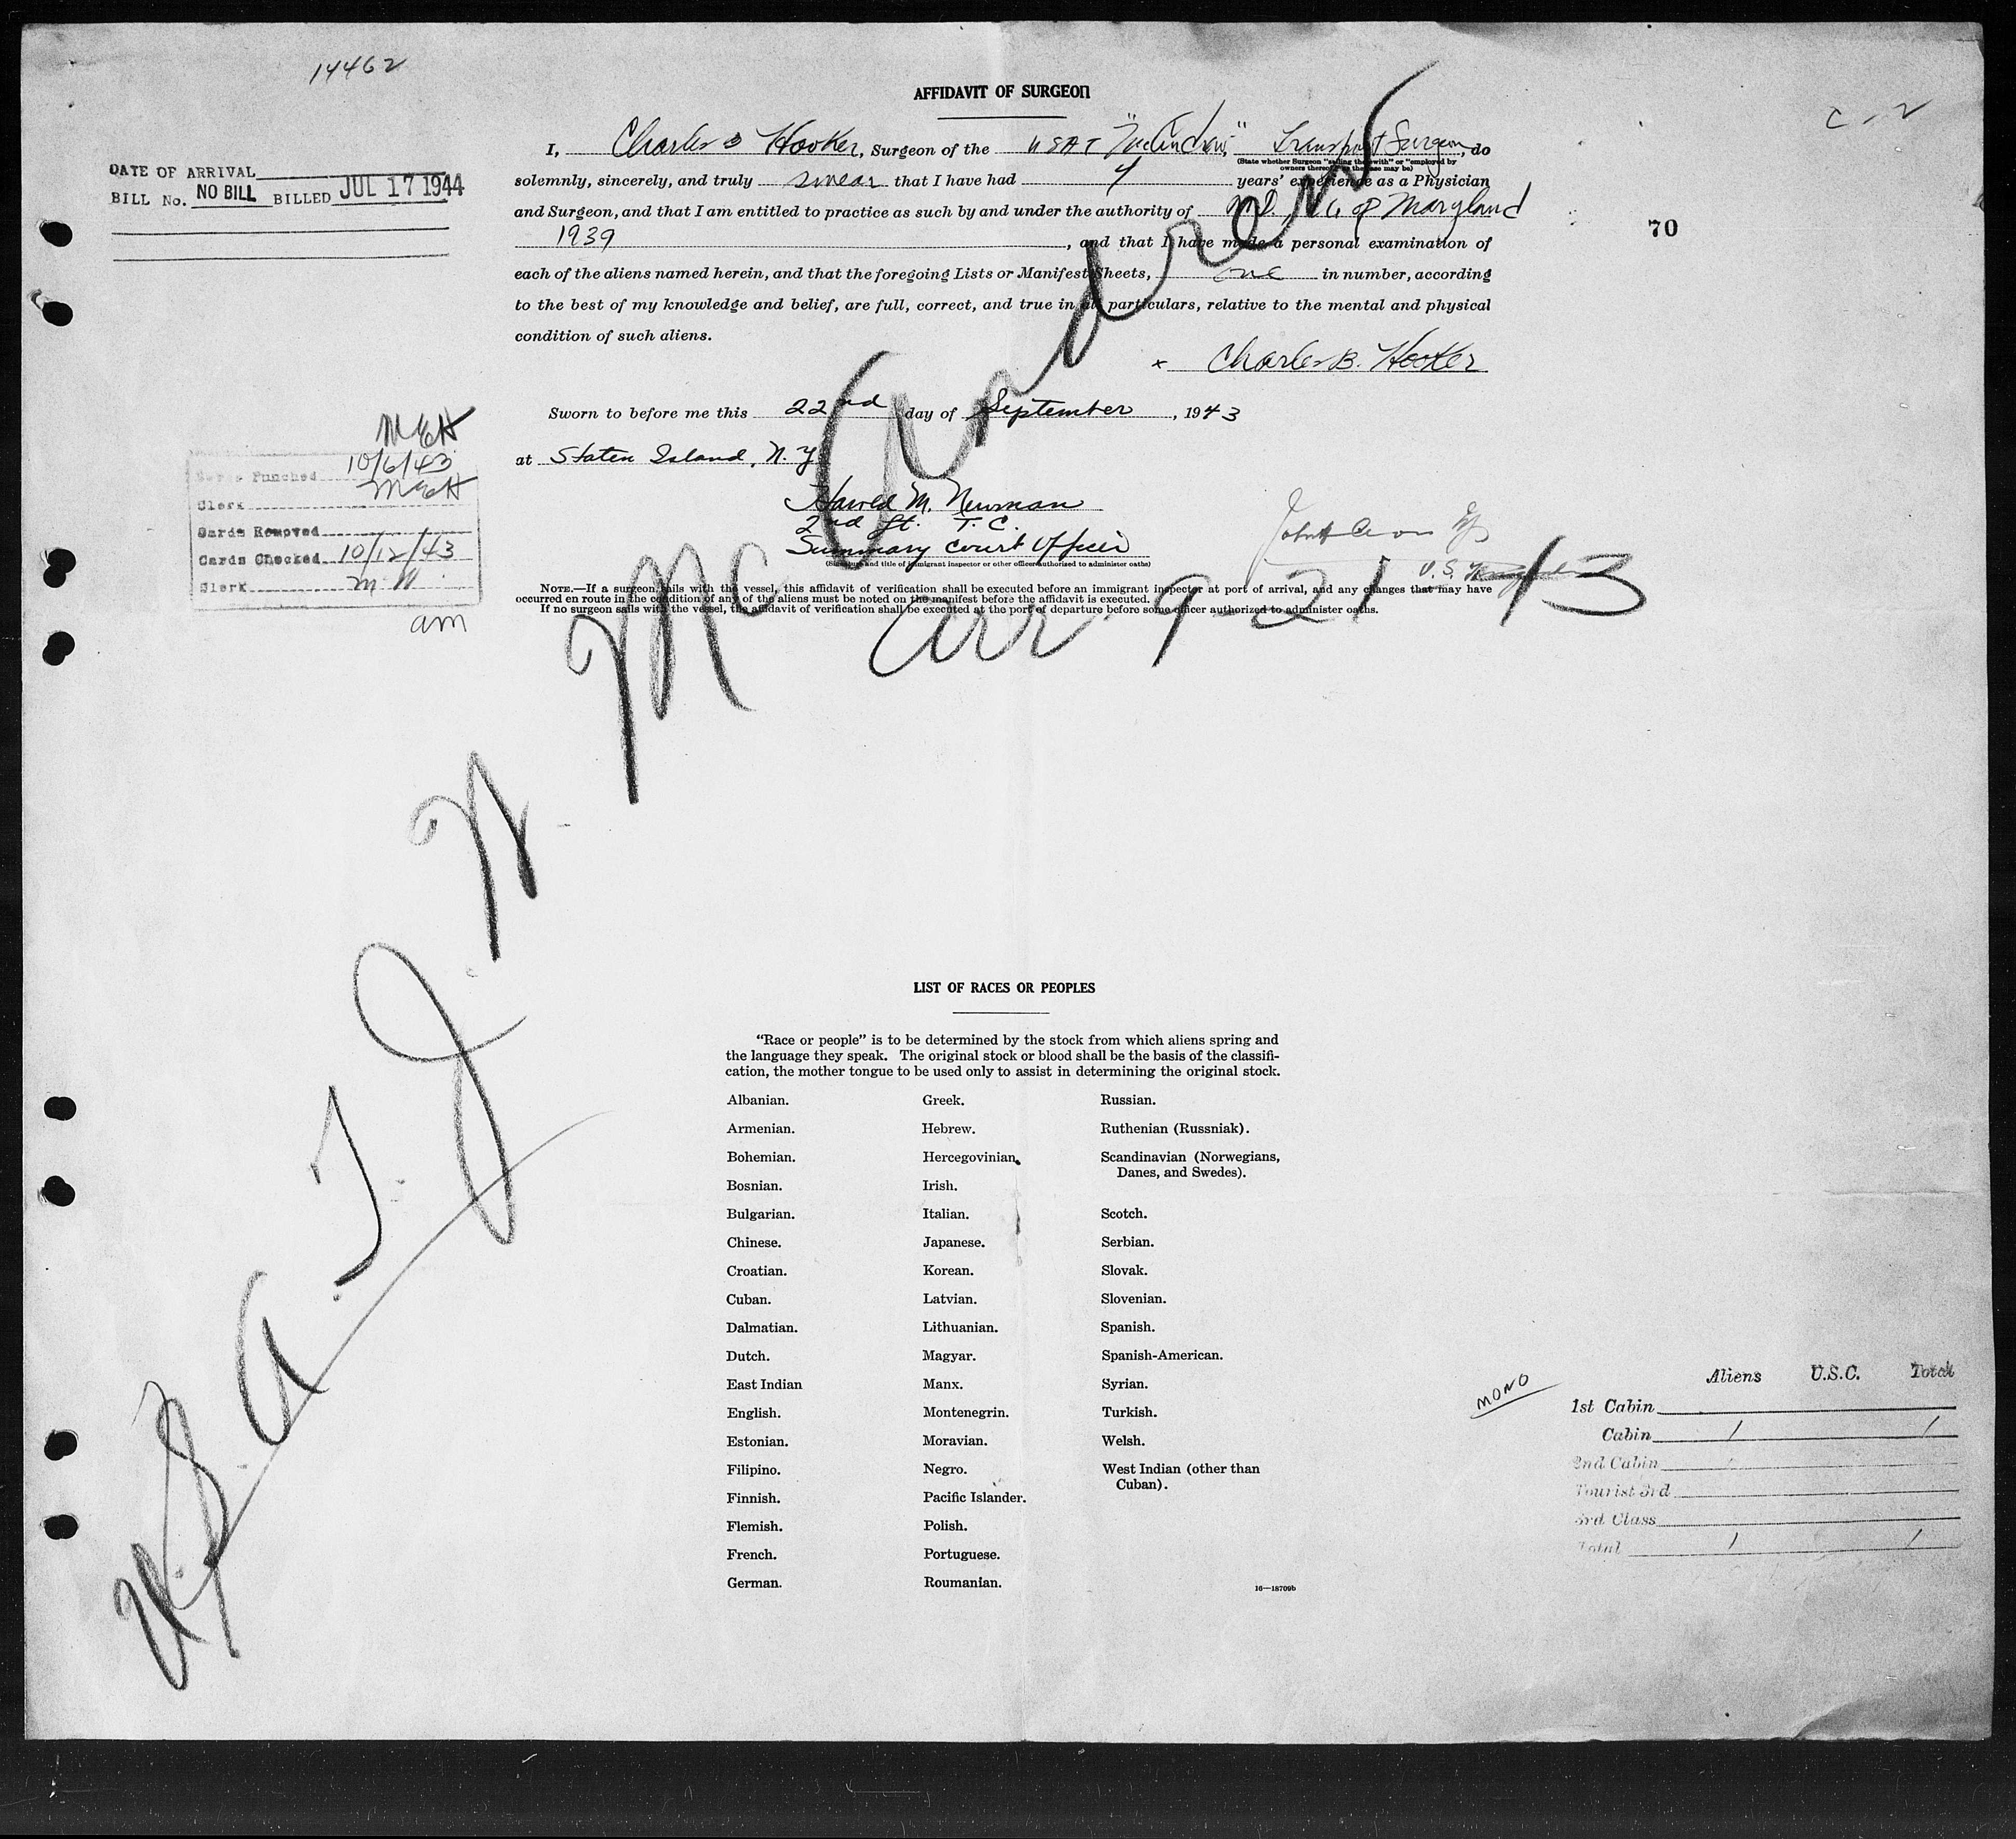 14462
C-2
AFFIDAVIT OF SURGEON
I, Charles B Hooker, Surgeon of the USAT "McAndrew," Transport Surgeon, do
(State whether Surgeon "sailing therewith" or "employed by
owners thereof," as the case may be)
solemnly, sincerely, and truly swear that I have had 4 years' experience as a Physician
and Surgeon, and that I am entitled to practice as such by and under the authority of M.D. U. of Maryland
1939, and that I have made a personal examination of
each of the aliens named herein, and that the foregoing Lists or Manifest Sheets, one in number, according
to the best of my knowledge and belief, are full, correct, and true in all particulars, relative to the mental and physical
condition of such aliens.
x Charles B. Hooker
Sworn to before me this 22nd day of September, 1943
at Staten Island, N.Y.
Harold M. Newman
2nd Lt. T.C.
Summary Court Officer
(Signature and title of immigrant inspector or other officer authorized to administer oaths)
NOTE.—If a surgeon sails with the vessel, this affidavit of verification shall be executed before an immigrant inspector at port of arrival, and any changes that may have
occurred en route in the condition of any of the aliens must be noted on the manifest before the affidavit is executed.
If no surgeon sails with the vessel, the affidavit of verification shall be executed at the port of departure before some officer authorized to administer oaths.
DATE OF ARRIVAL
BILL No. NO BILL BILLED JUL 17 1944
70
MEH
Cards Punched 10/6/43
Clerk MEH
Cards Removed
Cards Checked 10/12/43
Clerk M.W.
am
U.S.
U.S.A.T. J. W. McAndrews
Arr. 9-21-43
LIST OF RACES OR PEOPLES
"Race or people" is to be determined by the stock from which aliens spring and
the language they speak. The original stock or blood shall be the basis of the classifi-
cation, the mother tongue to be used only to assist in determining the original stock.
Albanian.
Armenian.
Bohemian.
Bosnian.
Bulgarian.
Chinese.
Croatian.
Cuban.
Dalmatian.
Dutch.
East Indian
English.
Estonian.
Filipino.
Finnish.
Flemish.
French.
German.
Greek.
Hebrew.
Hercegovinian.
Irish.
Italian.
Japanese.
Korean.
Latvian.
Lithuanian.
Magyar.
Manx.
Montenegrin.
Moravian.
Negro.
Pacific Islander.
Polish.
Portuguese.
Roumanian.
Russian.
Ruthenian (Russniak).
Scandinavian (Norwegians,
Danes, and Swedes).
Scotch.
Serbian.
Slovak.
Slovenian.
Spanish.
Spanish-American.
Syrian.
Turkish.
Welsh.
West Indian (other than
Cuban).
16—18709b
MONO
Aliens U.S.C. Total
1st Cabin
Cabin 1 1
2nd Cabin
Tourist 3rd
3rd Class
Total 1 1